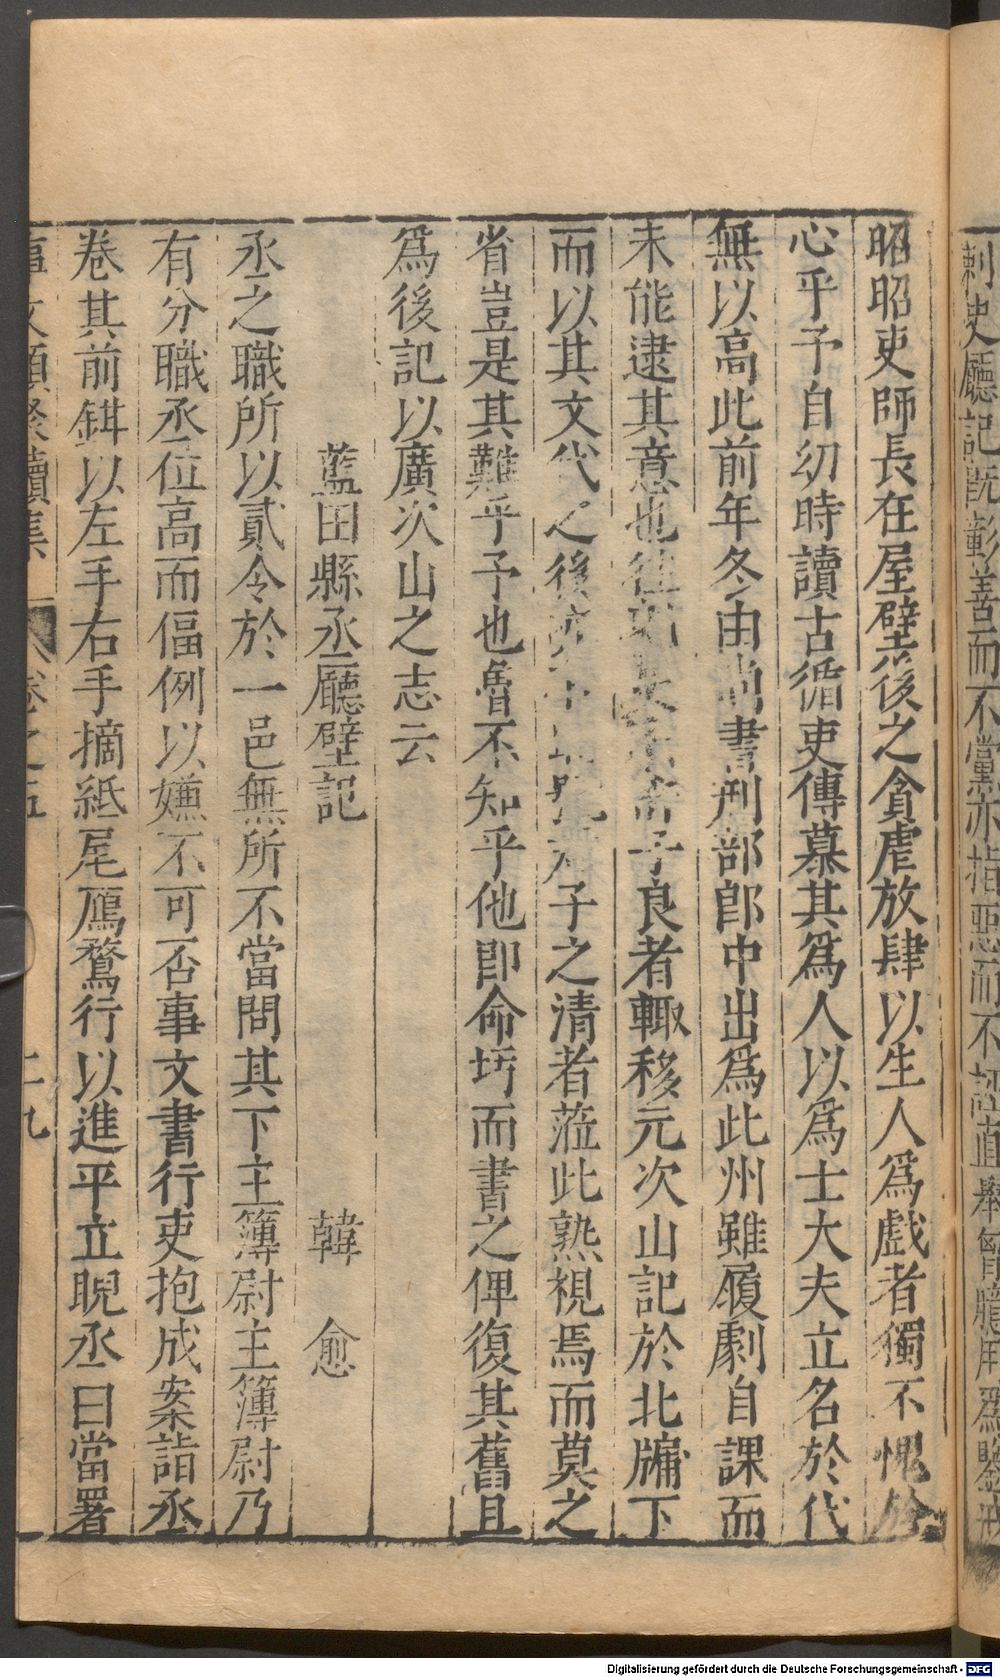 刺史廳記既彰善而不黨亦指惡而不誣直舉胷臆用爲鑒戒
昭昭吏師長在屋壁後之貪虐放肆以生人爲戲者獨不愧於
心乎予自幼時讀古循吏傳慕其爲人以爲士大夫立名於代
無以高此前年冬由尚書刑部郎中出爲此州雖履劇自課而
未能逮其意也往
子良者輙移元次山記於北牖下
而以其文代之後
子之清者蒞此熟視焉而莫之
省豈是其難乎予也魯不知乎他即命圬而書之俾復其舊且
爲後記以廣次山之志云
藍田縣丞廳壁記 韓愈
丞之職所以貳令於一邑無所不當問其下主簿尉主簿尉乃
有分職丞位高而偪例以嫌不可否事文書行吏抱成案詣丞
卷其前鉗以左手右手摘紙尾鴈鶩行以進平立睨丞曰當署
事文類聚續集 卷之五 二九
Digitalisierung gefördert durch die Deutsche Forschungsgemeinschaft - DFG